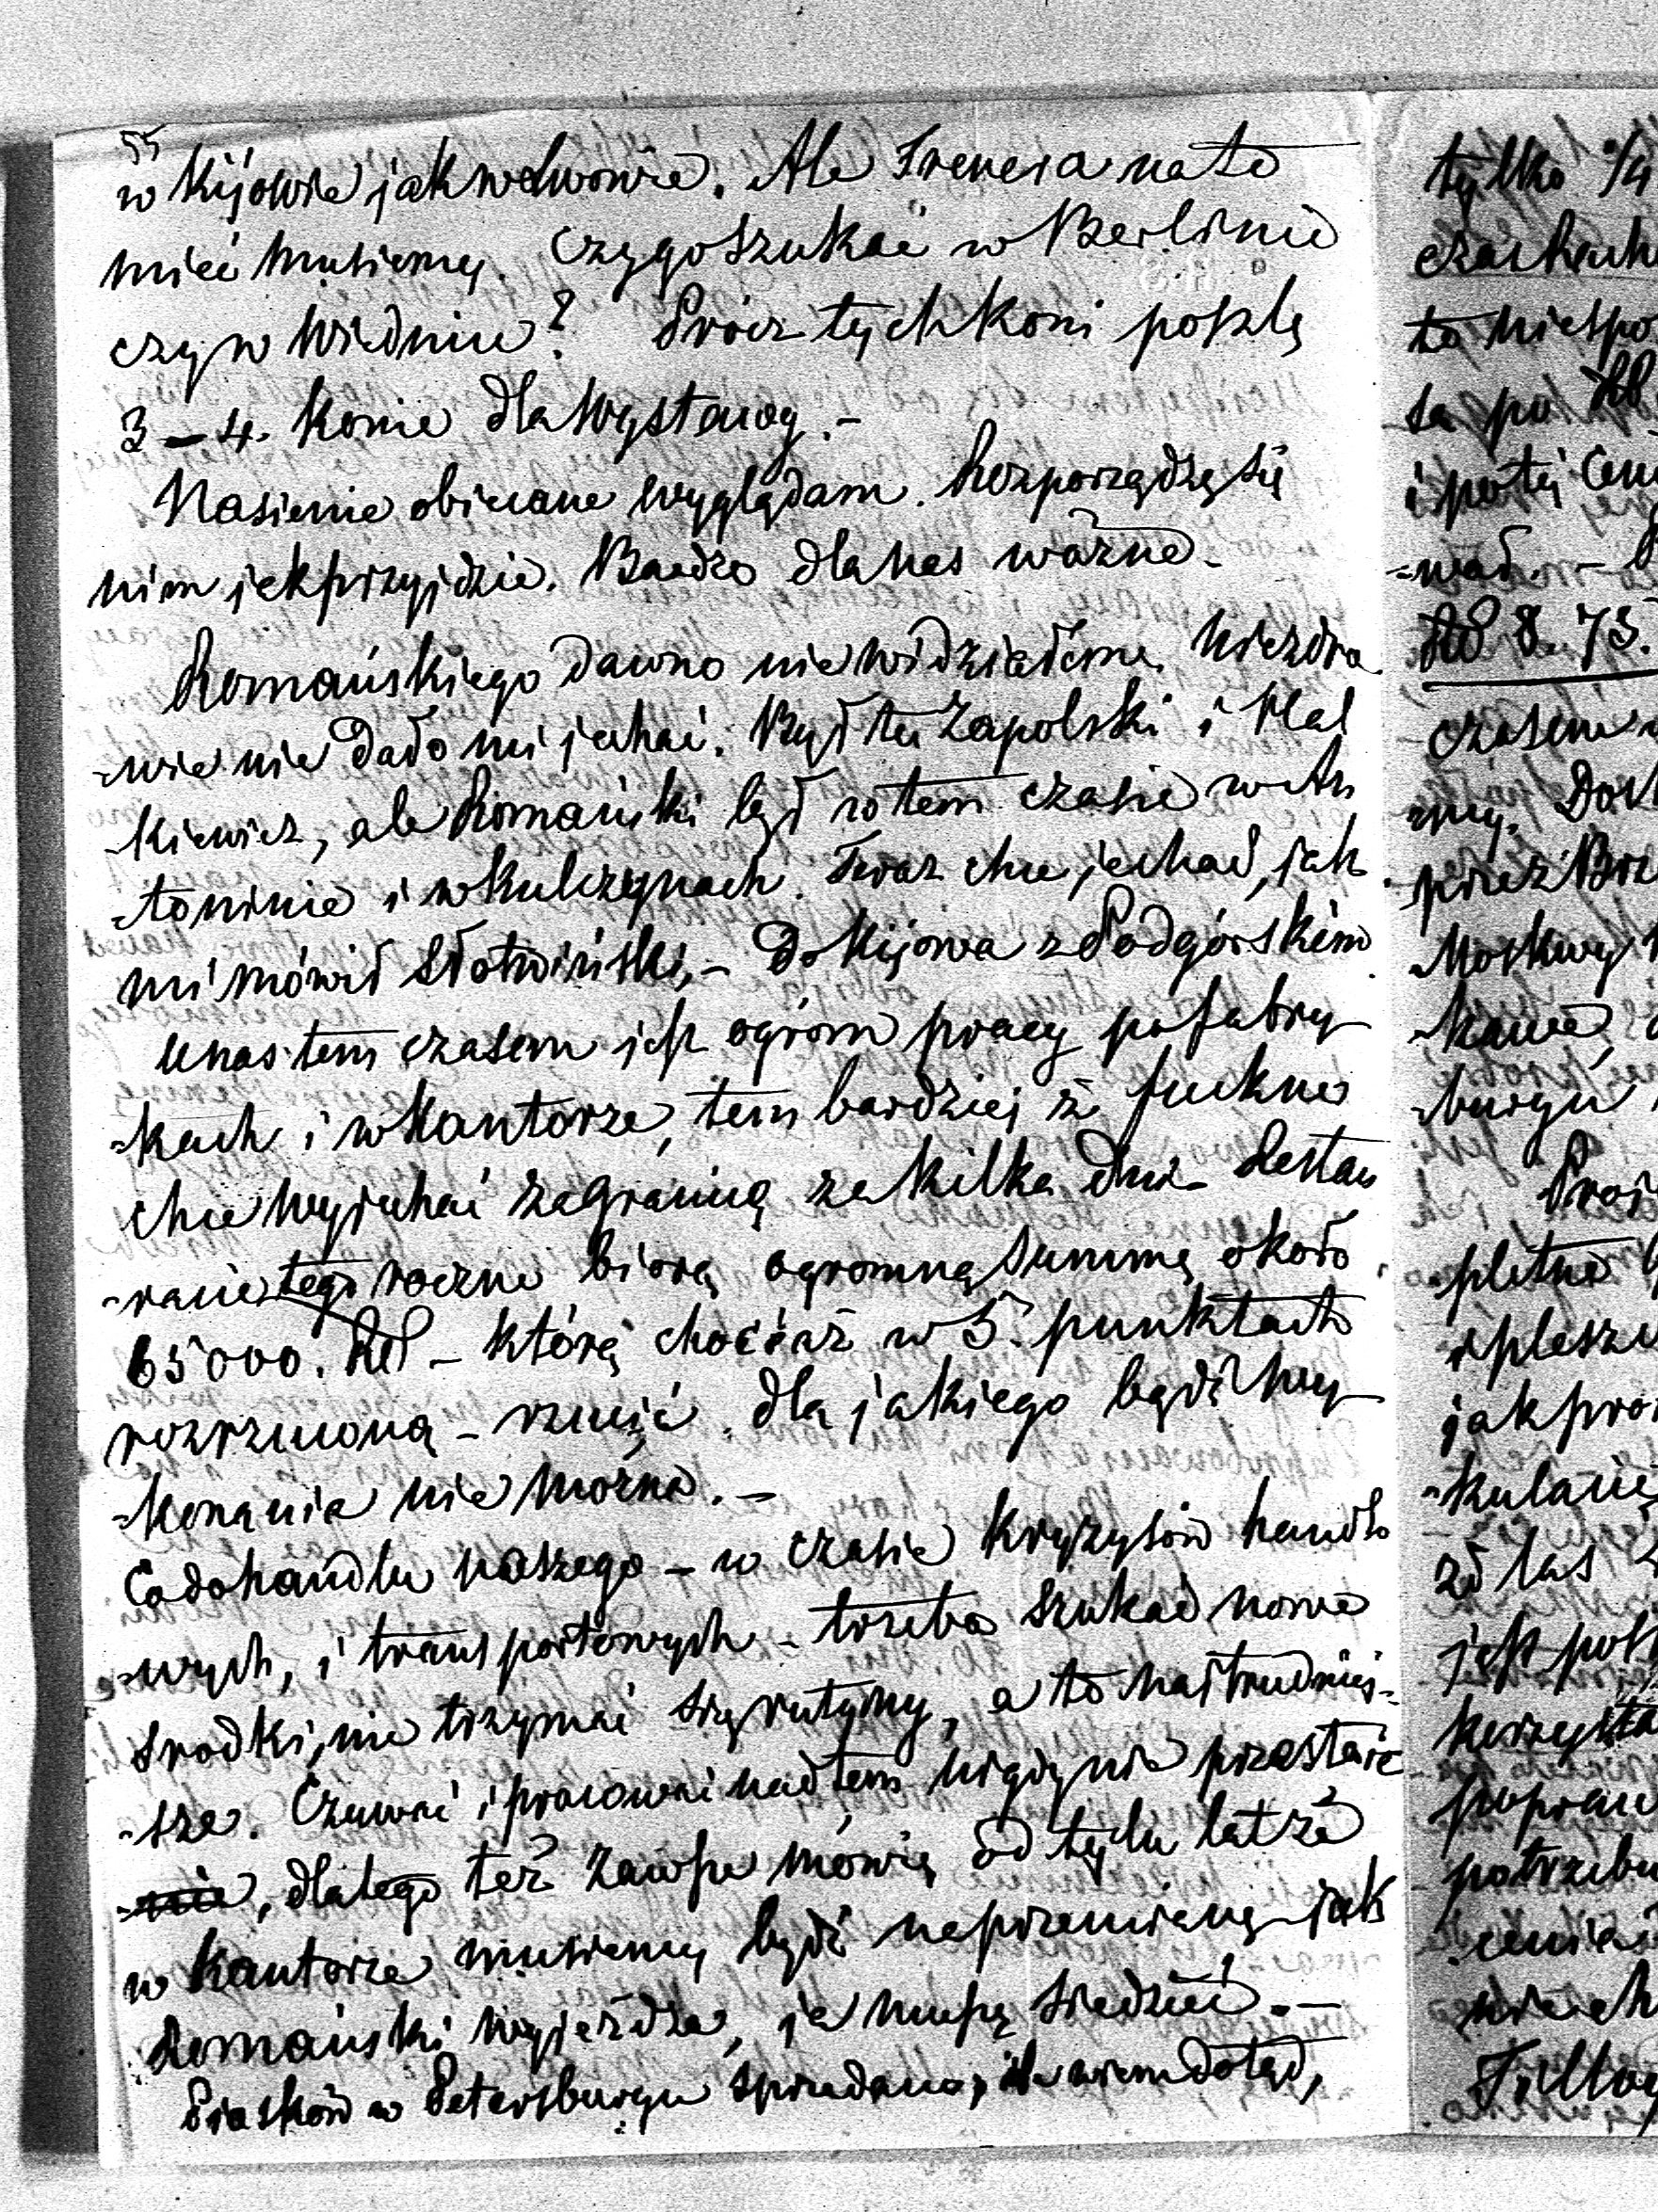 55
w Kijowie jak we Lwowie. Ale Trenera na to
mieć musiemy. Czy go szukać w Berlinie
czy w Wiedniu? Prócz tych koni poszlę
3–4. konie dla Wystawy. –
Nasienie obiecane wyglądam. Rozporządzę się
nim jak przyjdzie. Bardzo dla nas ważne.
Romańskiego dawno nie widziałem. Niezdro
-wie nie dało mi jechać. Był tu Zapolski i
-kiewicz, ale Romański był w tem czasie w An
-toninie i w Kulczynach. Teraz chce jechać, jak
mi mówił Słotwiński, – do Kijowa z Podgórskim
U nas tem czasem jest ogrom pracy po fabry
-kach i w Kantorze, tem bardziej iż
chce wyjechać zagranicę za kilka dni. Restau
-racie tego roczne biorą ogromną summę około
65000. – którą chociaż w 5. punktach
rozrzuconą – rzucić dla jakiego bądź wy
-konania nie można. –
Co do handlu naszego – w czasie kryzysów handlo
-wych, i transportowych – trzeba szukać nowe
srodki, nie trzymać się rutyny, a to najtrudniej-
-sze. Czuwać i pracować nad tem nigdy nie przestaie
, dlatego też zawsze mówię od tylu lat że
w Kantorze musiemy bydź naprzemianę – jak
Romański wyjeżdża, ja muszę siedzieć. –
Piasków w Petersburgu sprzedano, ile wiem dotąd,
tylko
to niespo
sa po
i po tej cen
-wać. –
8. 75.
czasem
my.
przez Brz
Moskwy
-burgu
-pletne
jak pro
-kulacię
jest
korzysta
popraw
potrzebu
nie ch